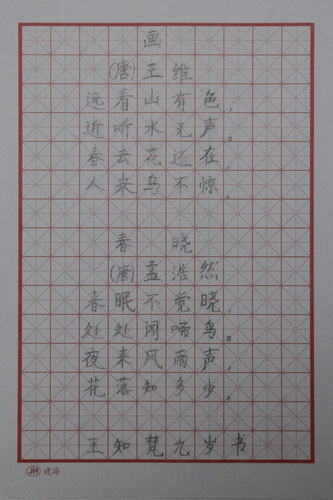 画
(唐)王维
远看山有色,
近听水无声。
春去花还在,
人来鸟不惊。
春晓
(唐)孟浩然
春眠不觉晓,
处处闻啼鸟。
夜来风雨声,
花落知多少。
王知梵九岁书
JH 建海